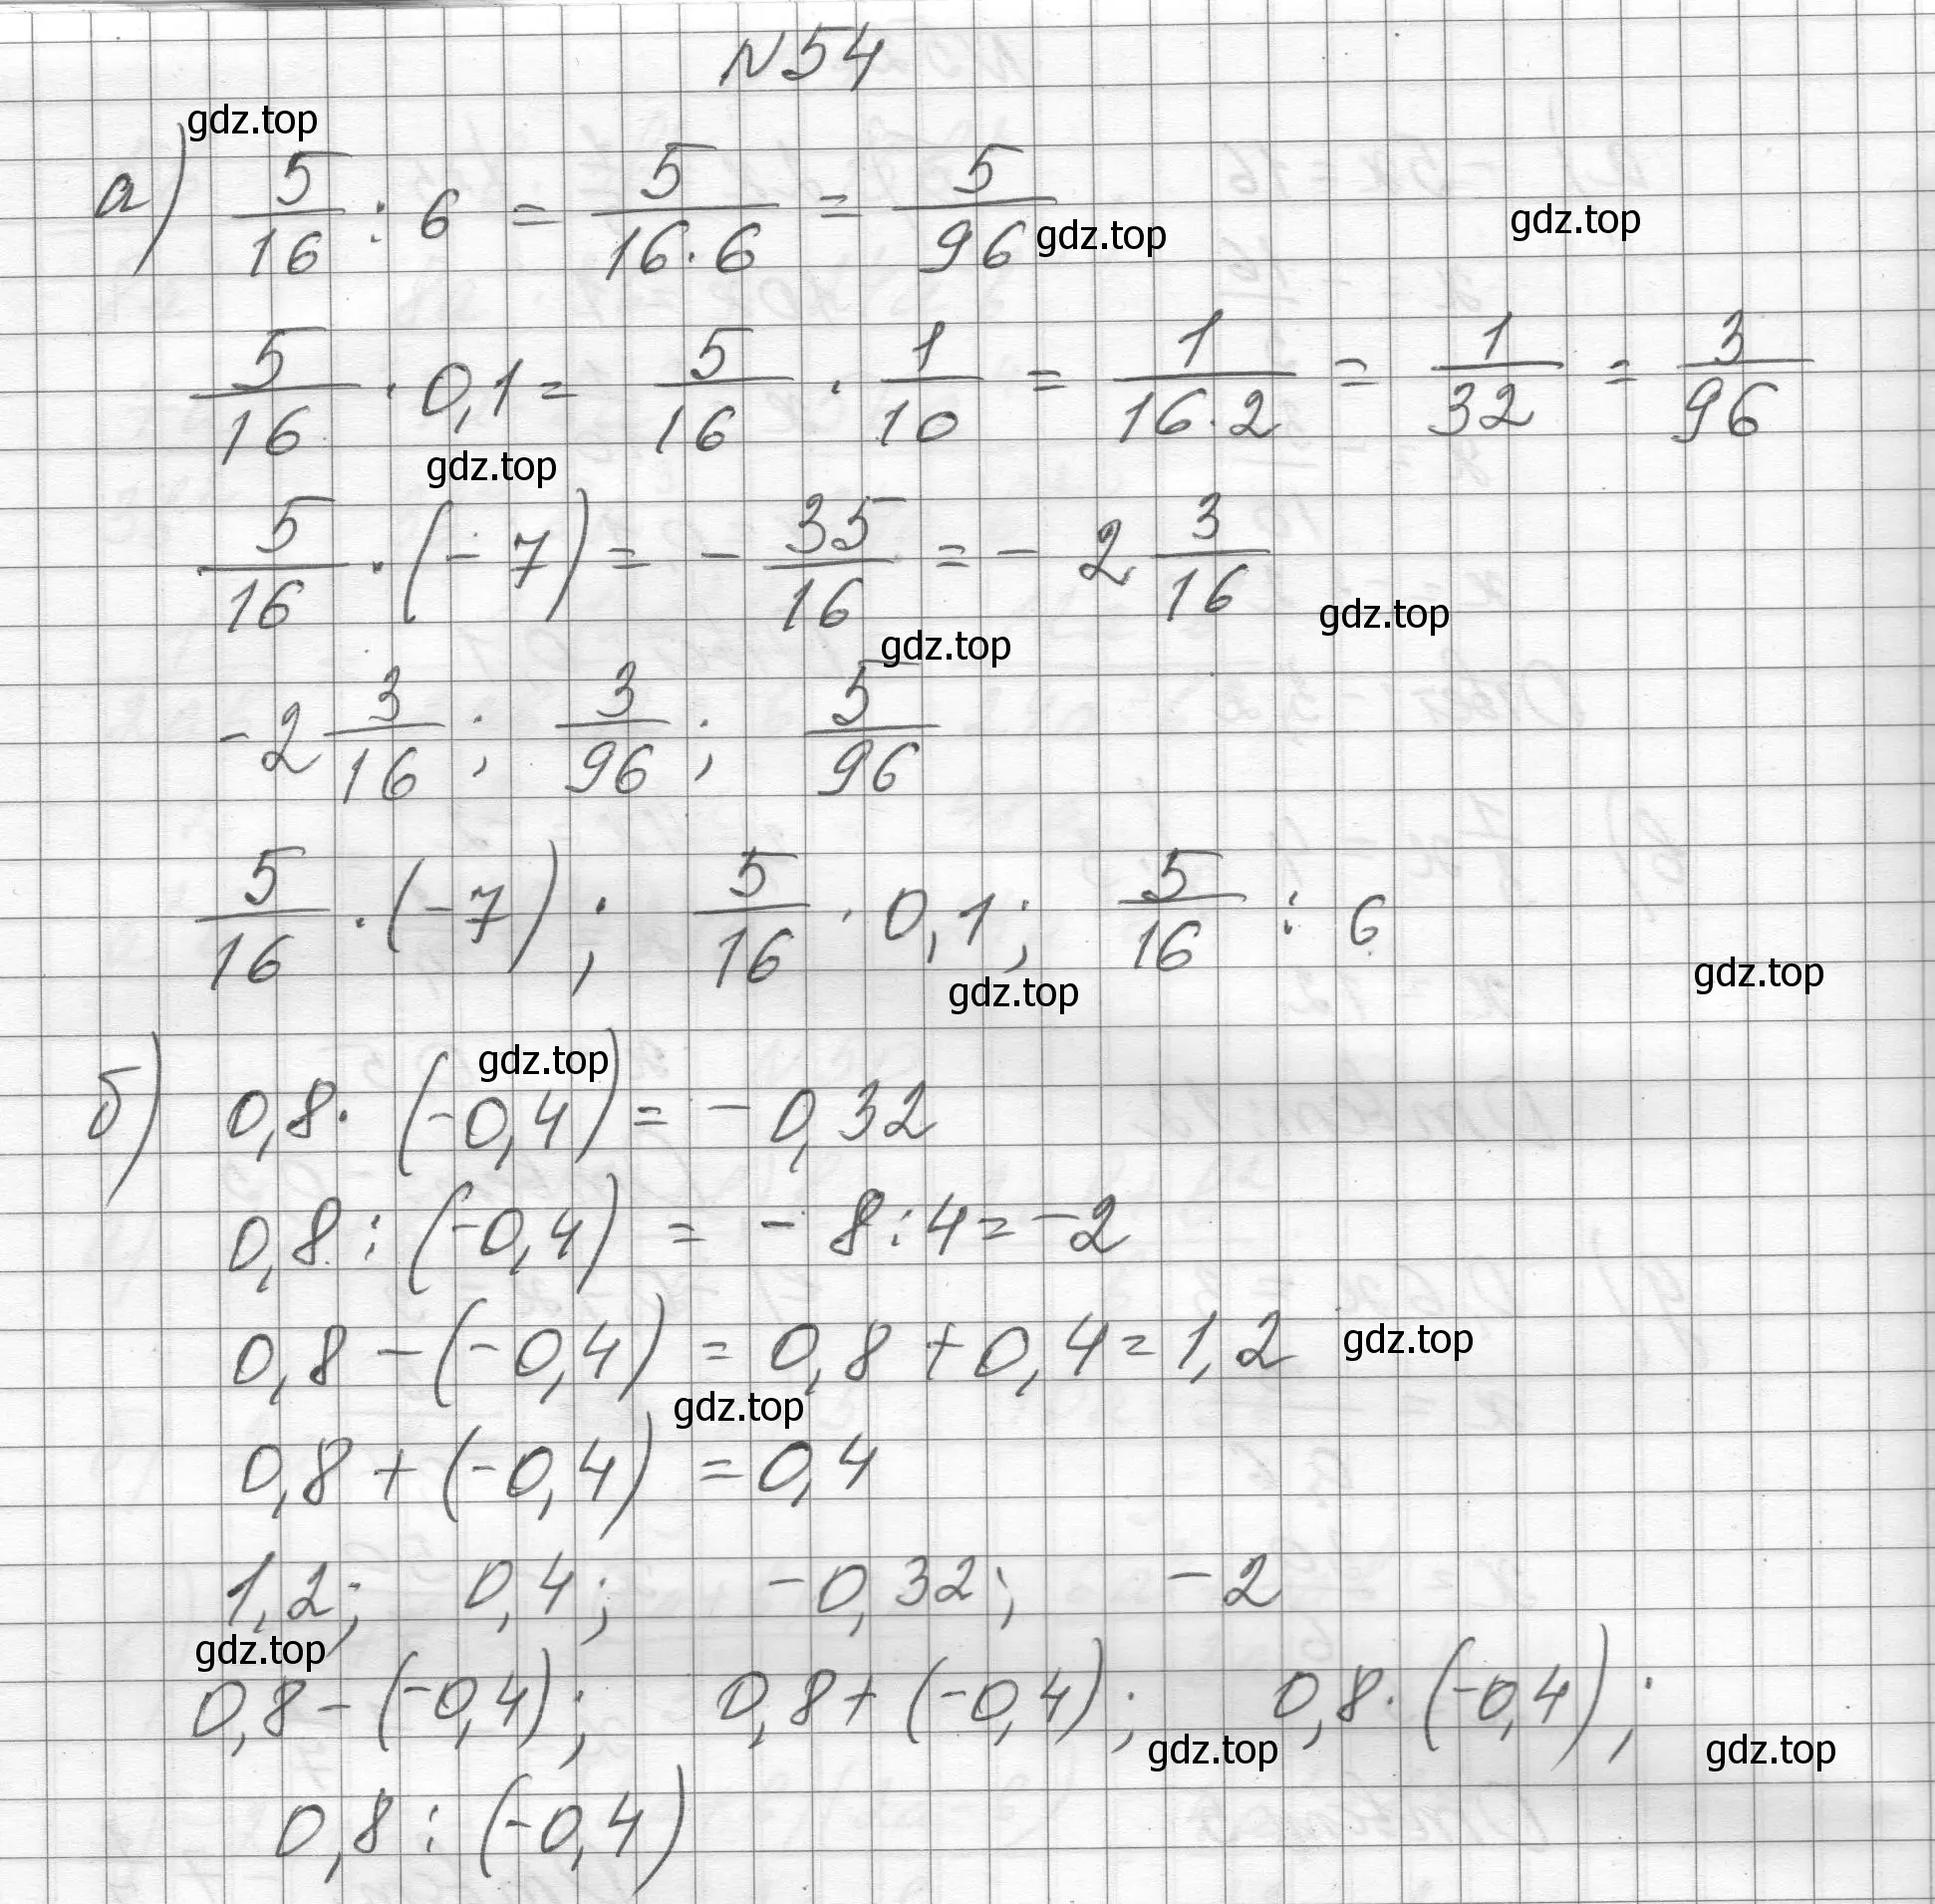 N54
gdz.top
а) 5/16 : 6 = 5/(16·6) = 5/96
gdz.top
gdz.top
5/16 · 0,1 = 5/16 · 1/10 = 1/(16·2) = 1/32 = 3/96
gdz.top
5/16 · (-7) = - 35/16 = - 2 3/16
gdz.top
gdz.top
-2 3/16 ; 3/96 ; 5/96
5/16 · (-7) ; 5/16 · 0,1 ; 5/16 : 6
gdz.top
gdz.top
gdz.top
б) 0,8 · (-0,4) = - 0,32
0,8 : (-0,4) = - 8 : 4 = -2
0,8 - (-0,4) = 0,8 + 0,4 = 1,2
gdz.top
gdz.top
0,8 + (-0,4) = 0,4
1,2; 0,4; -0,32; -2
gdz.top
0,8 - (-0,4); 0,8 + (-0,4); 0,8 · (-0,4);
gdz.top
gdz.top
0,8 : (-0,4)